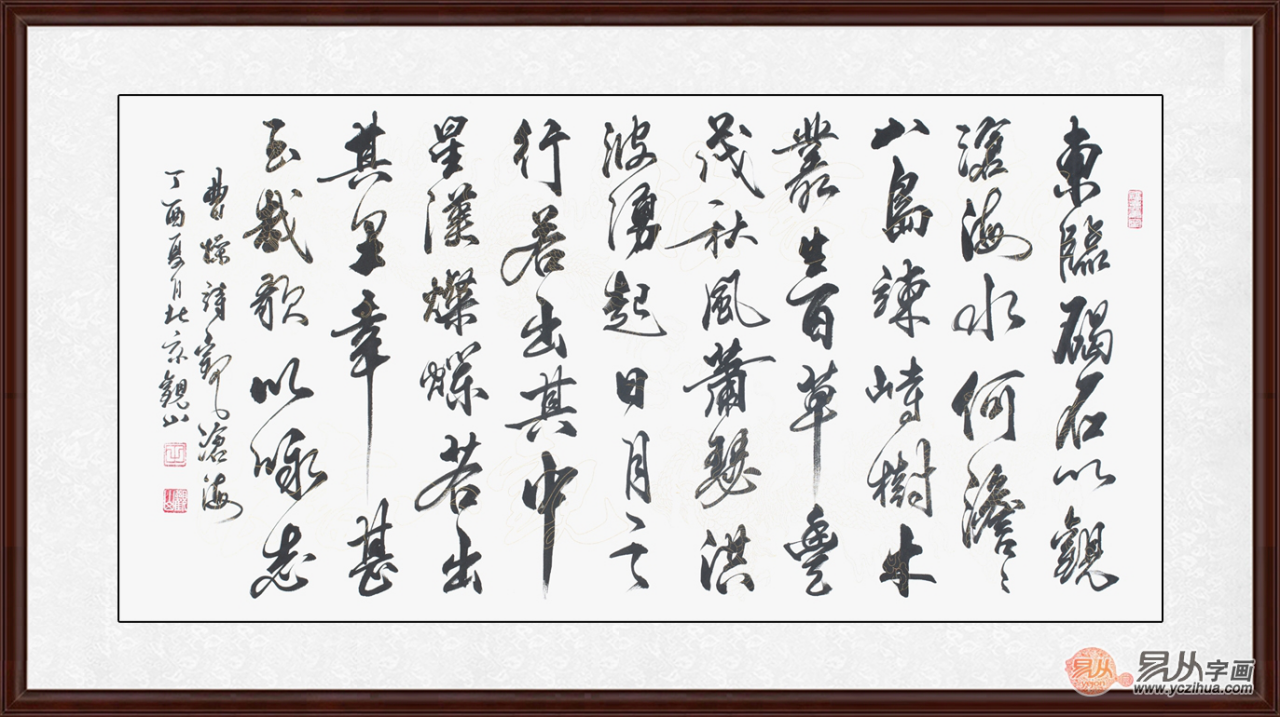 東臨碣石以觀
滄海水何澹〻
山島竦峙樹木
叢生百草豐
茂秋風蕭瑟洪
波湧起日月之
行若出其中
星漢燦爛若出
其里幸甚
至哉歌以咏志
曹操詩觀滄海
丁酉夏月北京觀山
易从
易从字画
www.yczihua.com